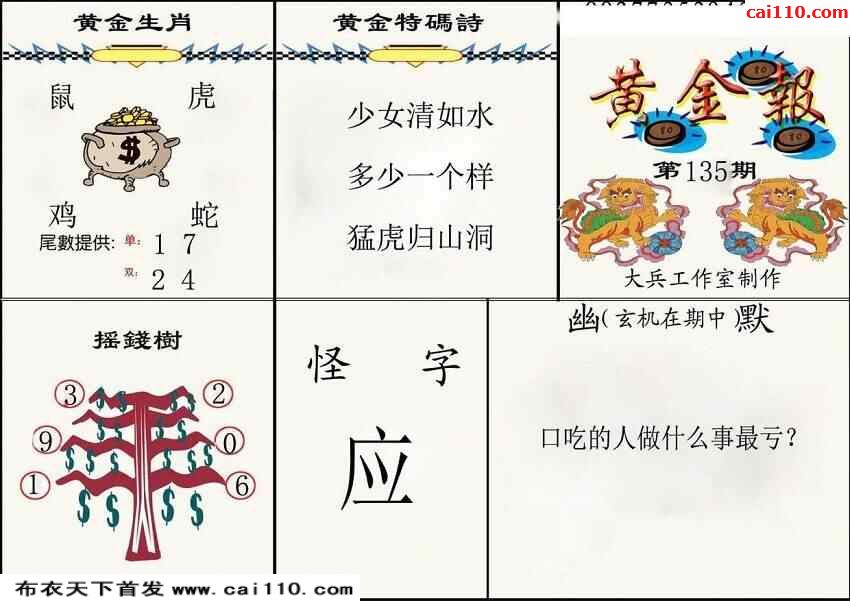 黄金生肖
鼠 虎
$
鸡 蛇
尾數提供: 单: 1 7
双: 2 4
黄金特碼詩
少女清如水
多少一个样
猛虎归山洞
cai110.com
黄金報
80
80
80
第135期
大兵工作室制作
摇錢樹
3 2
9 0
1 6
怪字
应
幽(玄机在期中)默
口吃的人做什么事最亏?
布衣天下首发 www.cai110.com